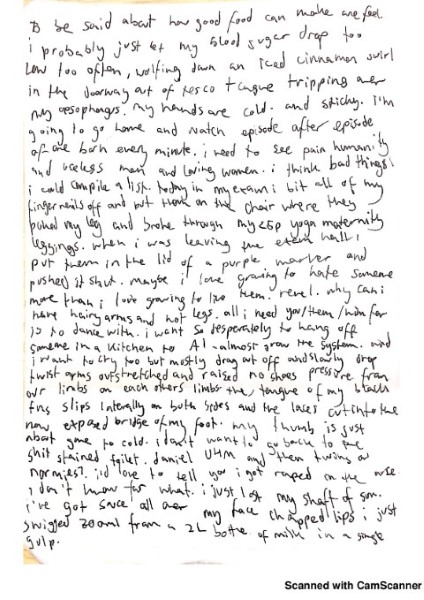 be said about how good food can make one feel.
i probably just let my blood sugar drop too
low too often, wolfing down an iced cinnamon swirl
in the doorway out of tesco tongue tripping over
my oesophagus. my hands are cold. and sticky. i'm
going to go home and watch episode after episode
of one born every minute. i need to see pain humanity
and useless men and loving women. i think bad things.
i could compile a list. today in my exam i bit all of my
fingernails off and put them on the chair where they
poked my leg and broke through my yoga maternity
leggings. when i was leaving the exam hall i
put them in the lid of a purple marker and
pushed it shut. maybe i love growing to hate someone
more than i love growing to love them. revel. why can i
have hairy arms and not legs. all i need you/them/whom for
is to dance with. i want so desperately to hang off
someone in a kitchen to A1 - almost grow the system. and
i want to cry too but mostly drag out off and slowly drop
twist arms outstretched and raised no shoes pressure from
our limbs on each others limbs the tongue of my black
slips laterally on both sides and the laces cut into the
now exposed bridge of my foot. my thumb is just
about gone to cold. i don't want to go back to the
shit stained toilet. daniel and them twins or
normies?. i'd love to tell you i got raped on the
i don't know for what. i just lost my shaft of sun.
i've got sauce all over my face chapped lips i just
swigged 300ml from a 2L bottle of milk in a single
gulp.
Scanned with CamScanner